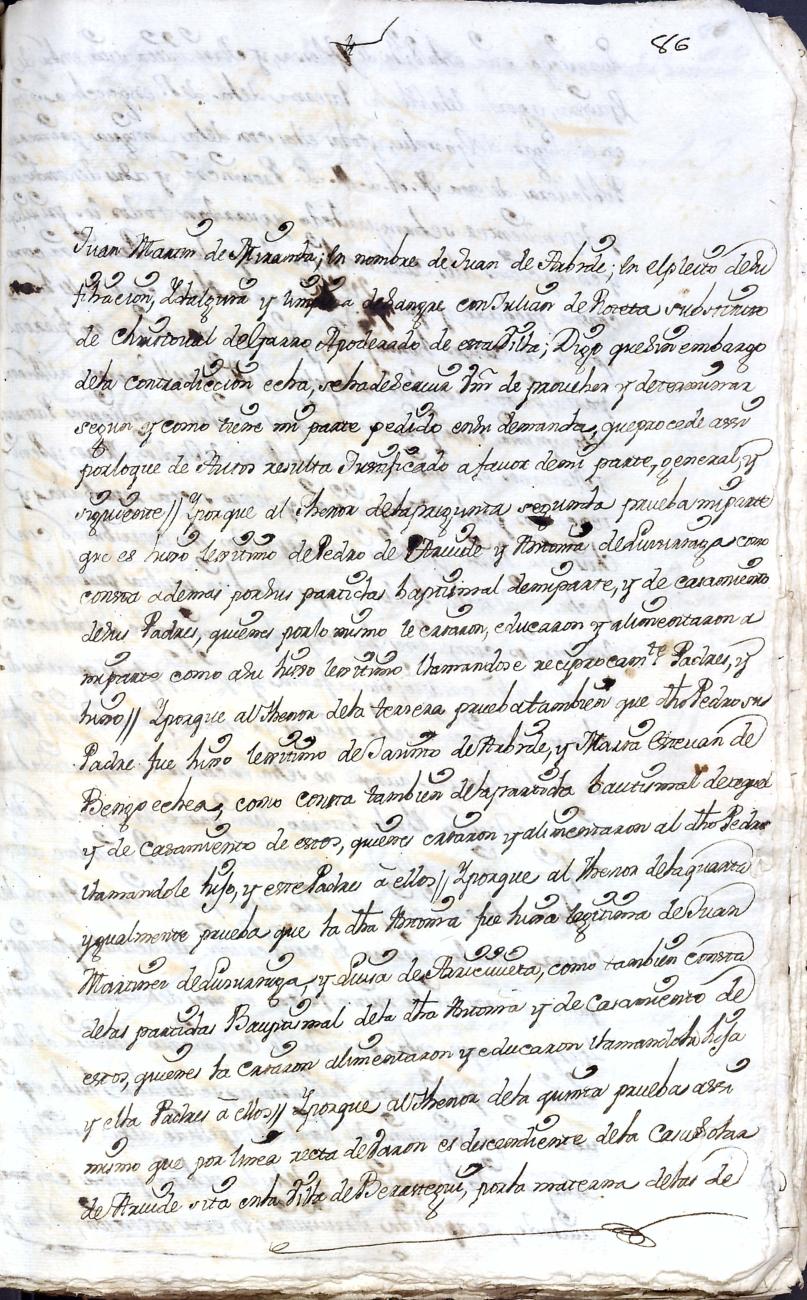 86
Juan Martin de Miranda; en nombre de Juan de; en el pleito de su
filiacion, Ydalguia y limpieza de sangre con Julian de Roteta substituto
de Christoval de Garro Apoderado de esta Villa; Digo que sin embargo
dela contradiccion echa, se ha de servir Vm de proveher y determinar
segun y como tiene mi parte pedido en su demanda, que procede assi
por lo que de Autos resulta Justificado a favor de mi parte, general, y
siguiente // Yporque al thenor de la pregunta segunda prueba mi parte
que es hijo lexitimo de Pedro de y Antonia de como
consta ademas por sus partidas baptismal de mi parte, y de casamiento
de sus Padres, quienes por lo mismo le criaron, educaron y alimentaron a
mi parte como a su hijo lexitimo llamandose reciprocamte Padres, y
hijo // Yporque al thenor dela terzera prueba tambien que dho Pedro su
Padre fue hijo lexitimo de de, y Maria Estevan de
Bengoechea, como consta tambien dela partida bautismal de aquel
y de Casamiento de estos, quienes criaron y alimentaron al dho Pedro
llamandole hijo, y este Padres â ellos // Yporque al thenor dela quarta
ygualmente prueba que la dha Antonia fue hija legitima de Juan
Martinez de, y Luisa de, como tambien consta
delas partidas Baptismal dela dha Antonia y de Casamiento de
estos, quienes la criaron alimentaron y educaron llamandola hija
y ella Padres â ellos // Yporque al thenor dela quinta prueba assi
mismo que por linea recta de Varon es descendiente dela Casa Solar
de sita en la Villa de Berastegui, por la materna delas de